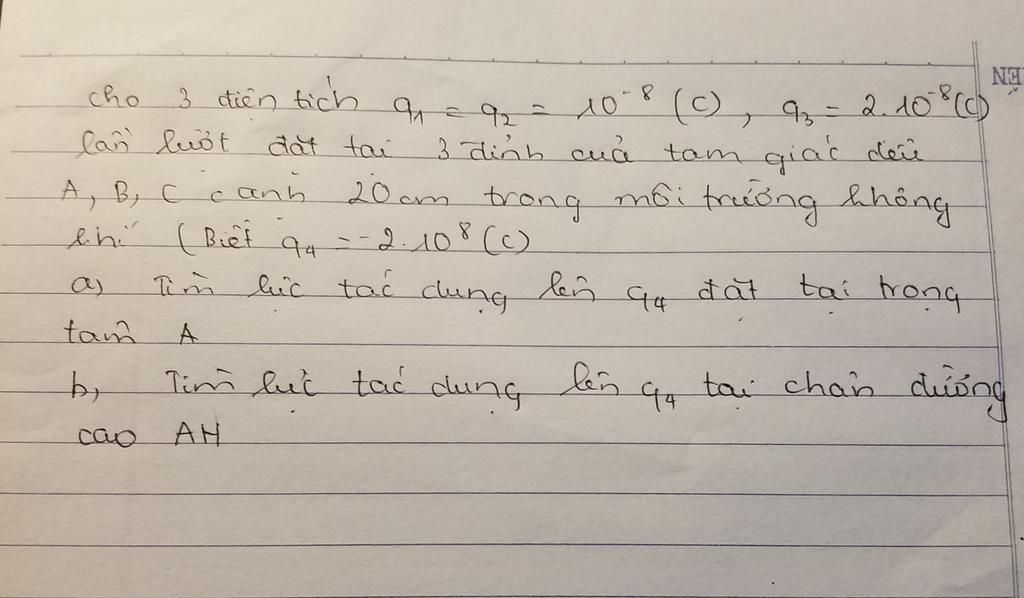 cho 3 điện tích q₁ = q₂ = 10⁻⁸ (C), q₃ = 2.10⁻⁸(C)
lần lượt đặt tại 3 đỉnh của tam giác đều
A, B, C cạnh 20cm trong môi trường không
khí (Biết q₄ = -2.10⁸(C)
a) Tìm lực tác dụng lên q₄ đặt tại trọng
tâm A
b, Tìm lực tác dụng lên q₄ tại chân đường
cao AH